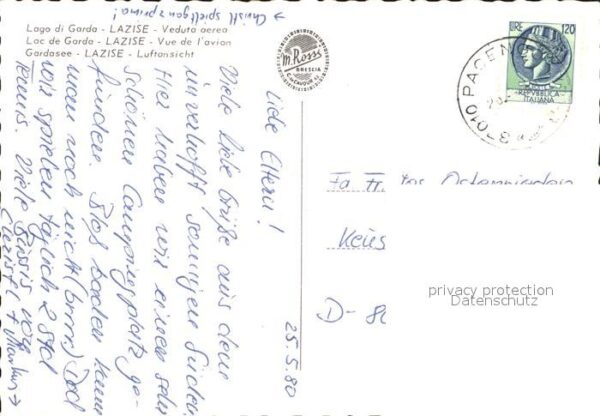 → Christl spielt ganz prima!
Lago di Garda - LAZISE - Veduta aerea
Lac de Garda - LAZISE - Vue de l'avion
Gardasee - LAZISE - Luftansicht
M. Rossi
BRESCIA
LIRE 120
REPUBBLICA
ITALIANA
37010 PACENGO
Liebe Eltern!
Viele liebe Grüße aus dem
unverhofft sonnigen Süden.
Hier haben wir einen sehr
schönen Campingplatz ge-
funden. Bloß baden kann
man noch nicht (brrrr) Doch
wir spielen täglich 2 Std
Tennis. Viele Bussis von
Christl + Markus →
25.5.80
Fa
Keies
D-8
privacy protection
Datenschutz